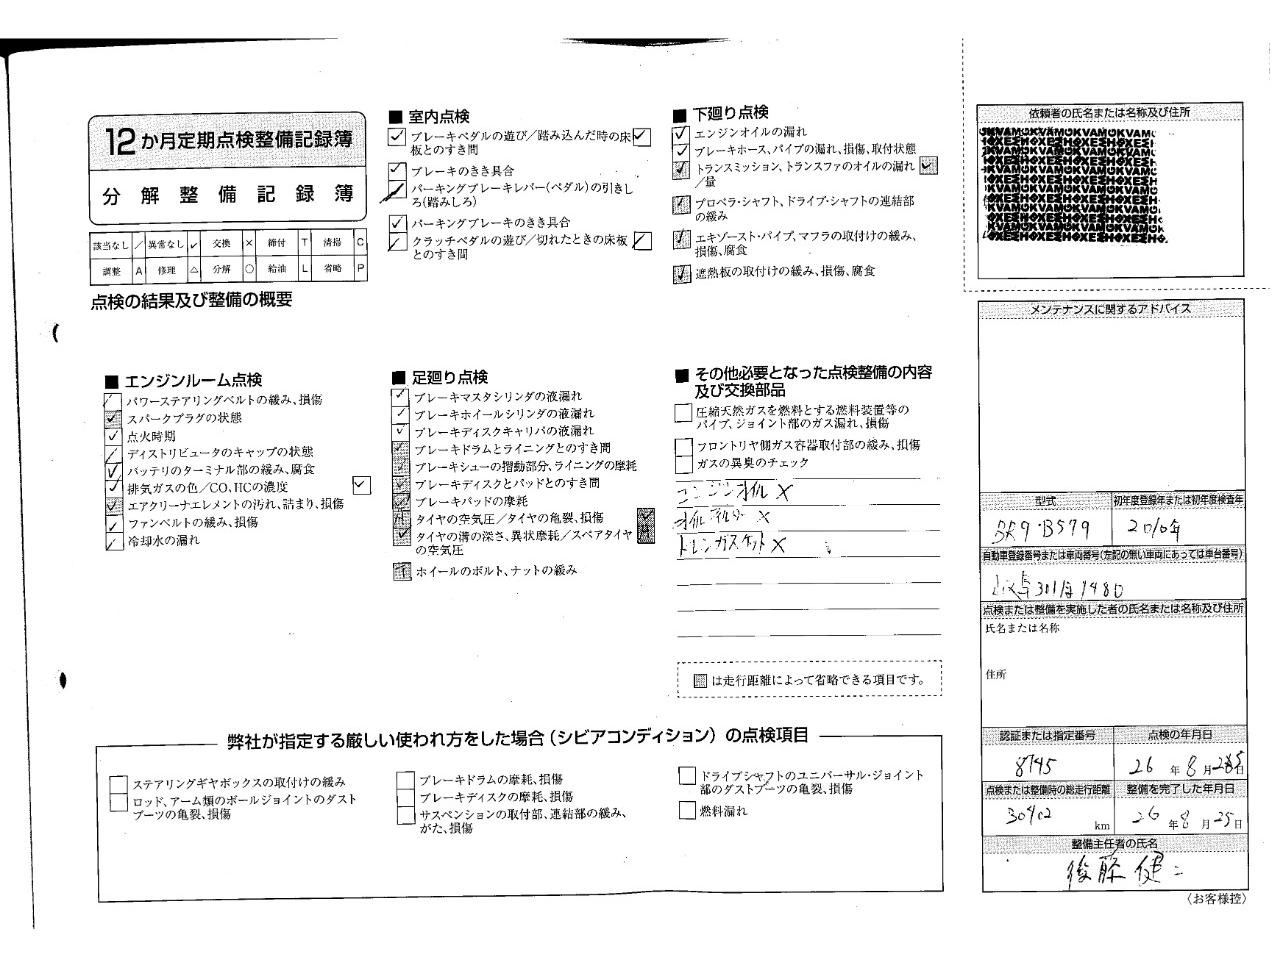 12か月定期点検整備記録簿
分解整備記録簿
該当なし ／ 異常なし ✓ 交換 × 締付 T 清掃 C
調整 A 修理 △ 分解 ○ 給油 L 省略 P
点検の結果及び整備の概要
■ 室内点検
ブレーキペダルの遊び／踏み込んだ時の床
板とのすき間
ブレーキのきき具合
パーキングブレーキレバー(ペダル)の引きし
ろ(踏みしろ)
パーキングブレーキのきき具合
クラッチペダルの遊び／切れたときの床板
とのすき間
■ 下廻り点検
エンジンオイルの漏れ
ブレーキホース、パイプの漏れ、損傷、取付状態
トランスミッション、トランスファのオイルの漏れ
／量
プロペラ・シャフト、ドライブ・シャフトの連結部
の緩み
エキゾースト・パイプ、マフラの取付けの緩み、
損傷、腐食
遮熱板の取付けの緩み、損傷、腐食
■ エンジンルーム点検
パワーステアリングベルトの緩み、損傷
スパークプラグの状態
点火時期
ディストリビュータのキャップの状態
バッテリのターミナル部の緩み、腐食
排気ガスの色／CO、HCの濃度
エアクリーナエレメントの汚れ、詰まり、損傷
ファンベルトの緩み、損傷
冷却水の漏れ
■ 足廻り点検
ブレーキマスタシリンダの液漏れ
ブレーキホイールシリンダの液漏れ
ブレーキディスクキャリパの液漏れ
ブレーキドラムとライニングとのすき間
ブレーキシューの摺動部分、ライニングの摩耗
ブレーキディスクとパッドとのすき間
ブレーキパッドの摩耗
タイヤの空気圧／タイヤの亀裂、損傷
タイヤの溝の深さ、異状摩耗／スペアタイヤ
の空気圧
ホイールのボルト、ナットの緩み
■ その他必要となった点検整備の内容
及び交換部品
圧縮天然ガスを燃料とする燃料装置等の
パイプ、ジョイント部のガス漏れ、損傷
フロントリヤ側ガス容器取付部の緩み、損傷
ガスの異臭のチェック
エンジンオイル ×
オイルフィルター ×
ドレンガスケット ×
は走行距離によって省略できる項目です。
弊社が指定する厳しい使われ方をした場合(シビアコンディション)の点検項目
ステアリングギヤボックスの取付けの緩み
ロッド、アーム類のボールジョイントのダスト
ブーツの亀裂、損傷
ブレーキドラムの摩耗、損傷
ブレーキディスクの摩耗、損傷
サスペンションの取付部、連結部の緩み、
がた、損傷
ドライブシャフトのユニバーサル・ジョイント
部のダストブーツの亀裂、損傷
燃料漏れ
依頼者の氏名または名称及び住所
メンテナンスに関するアドバイス
型式 初年度登録年または初年度検査年
BR9・B579 2010年
自動車登録番号または車両番号(左記の無い車両にあっては車台番号)
1480
点検または整備を実施した者の氏名または名称及び住所
氏名または名称
住所
認証または指定番号 点検の年月日
8745 26年8月25日
点検または整備時の総走行距離 整備を完了した年月日
30402 km 26年8月25日
整備主任者の氏名
後藤 健二
〈お客様控〉